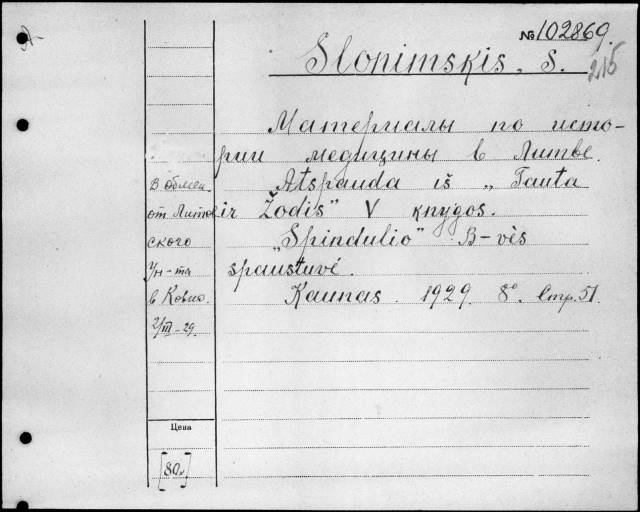 № 102869.
Slonimskis, S.
215
Материалы по исто-
рии медицины в Литве.
Atspauda iš „Tauta
ir Žodis" V knygos.
„Spindulio" B-vės
spaustuvė.
Kaunas. 1929. 8°. Стр. 51.
В обмен
от Литов
ского
Ун-та
в Ковно.
2/III-29.
Цена
[80к]